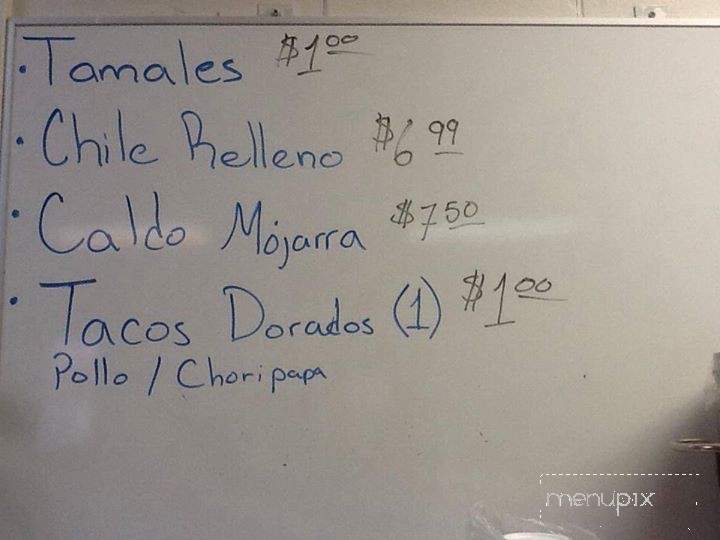 • Tamales $1.00
• Chile Relleno $6.99
• Caldo Mojarra $7.50
• Tacos Dorados (1) $1.00
Pollo / Choripapa
menupix